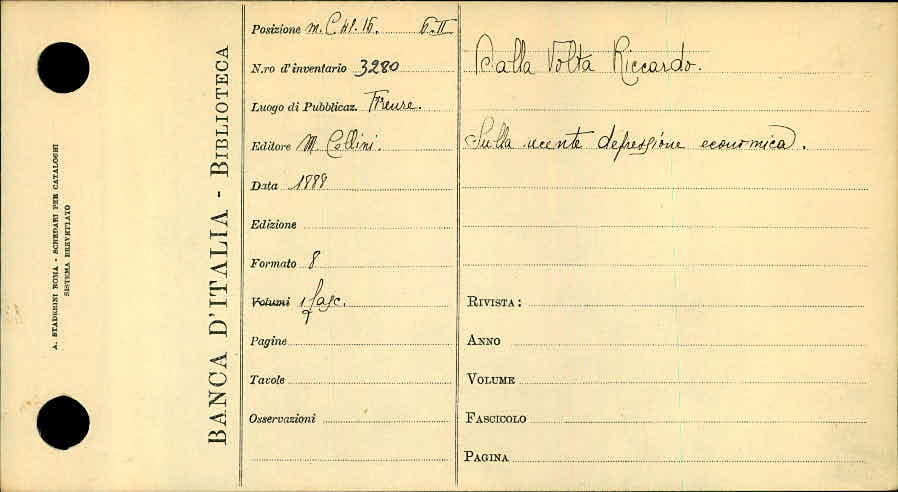 A. STADERINI ROMA - SCHEDARI PER CATALOGHI
SISTEMA BREVETTATO
BANCA D'ITALIA - BIBLIOTECA
Posizione m. C. 6.II
N.ro d'inventario 3280
Luogo di Pubblicaz. Firenze.
Editore M. Cellini.
Data 1888
Edizione
Formato 8
Volumi 1 fasc.
Pagine
Tavole
Osservazioni
Dalla Volta Riccardo.
Sulla recente depressione economica.
RIVISTA:
ANNO
VOLUME
FASCICOLO
PAGINA